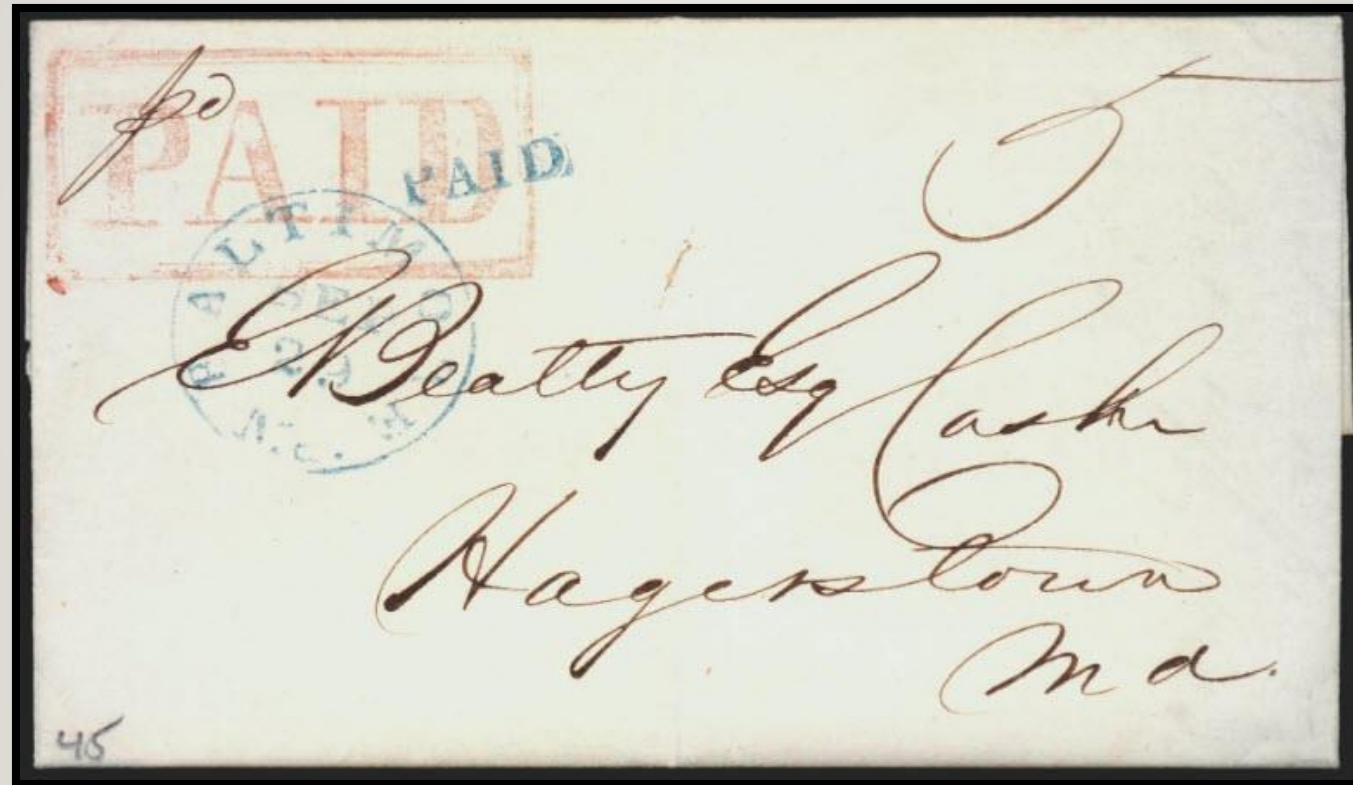 pd
PAID
PAID
5
BALTIMORE
SEP
29
Md.
E Beatty Esq Cashr
Hagerstown
Md.
45